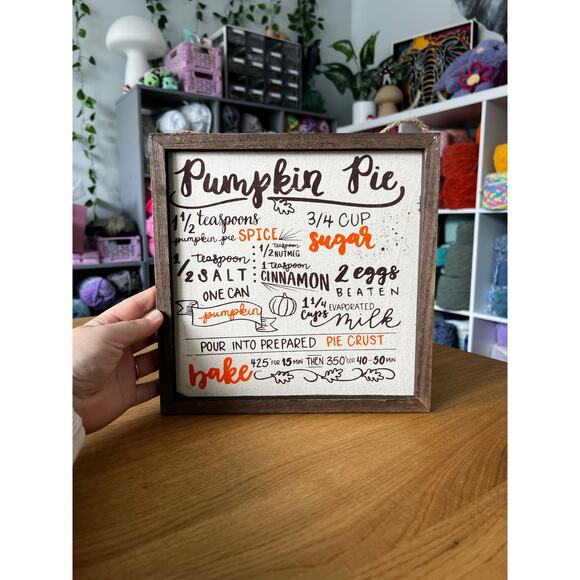 Pumpkin Pie
1 1/2 teaspoons
pumpkin pie SPICE
3/4 CUP
sugar
1/2 teaspoon
SALT
1/2 teaspoon
NUTMEG
1 teaspoon
CINNAMON
2 eggs
BEATEN
ONE CAN
pumpkin
1 1/4 Cups EVAPORATED
milk
POUR INTO PREPARED PIE CRUST
bake 425° FOR 15 MIN THEN 350° FOR 40-50 MIN